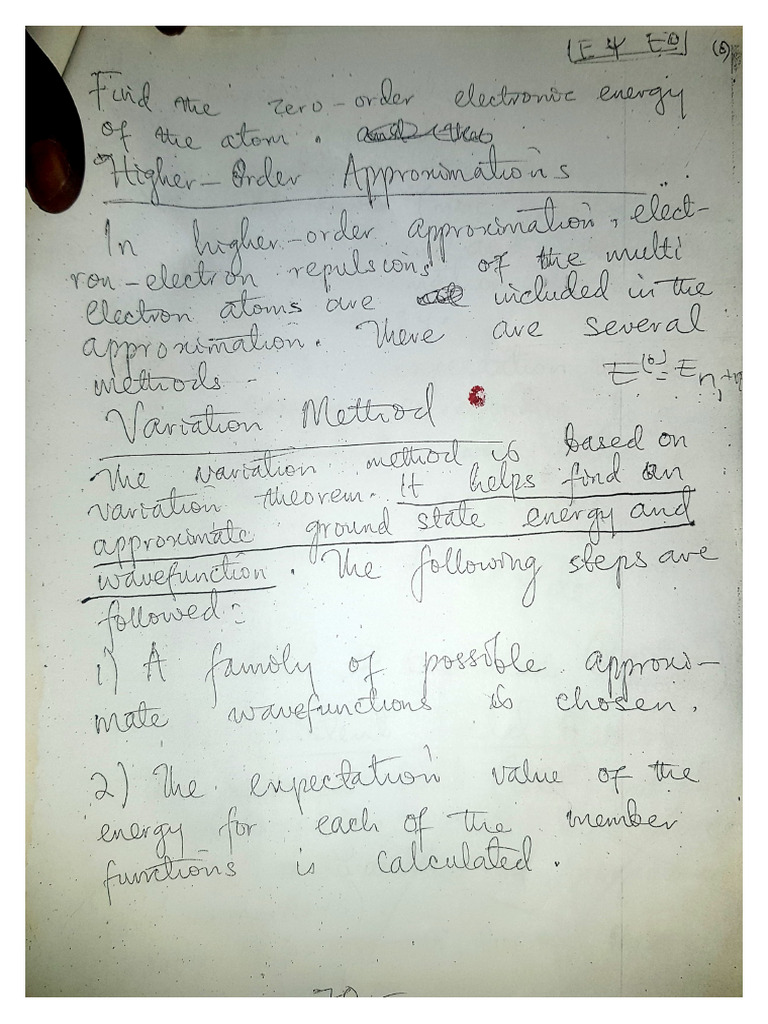 E Ψ E⁰ (6)
Find the zero-order electronic energy
of the atom.
Higher-Order Approximations
In higher-order approximation, elect-
ron-electron repulsions of the multi
electron atoms are included in the
approximation. There are several
methods -
E⁽⁰⁾ = E
Variation Method
The variation method is based on
variation theorem. It helps find an
approximate ground state energy and
wavefunction. The following steps are
followed:
1) A family of possible approxi-
mate wavefunctions is chosen.
2) The expectation value of the
energy for each of the member
functions is calculated.